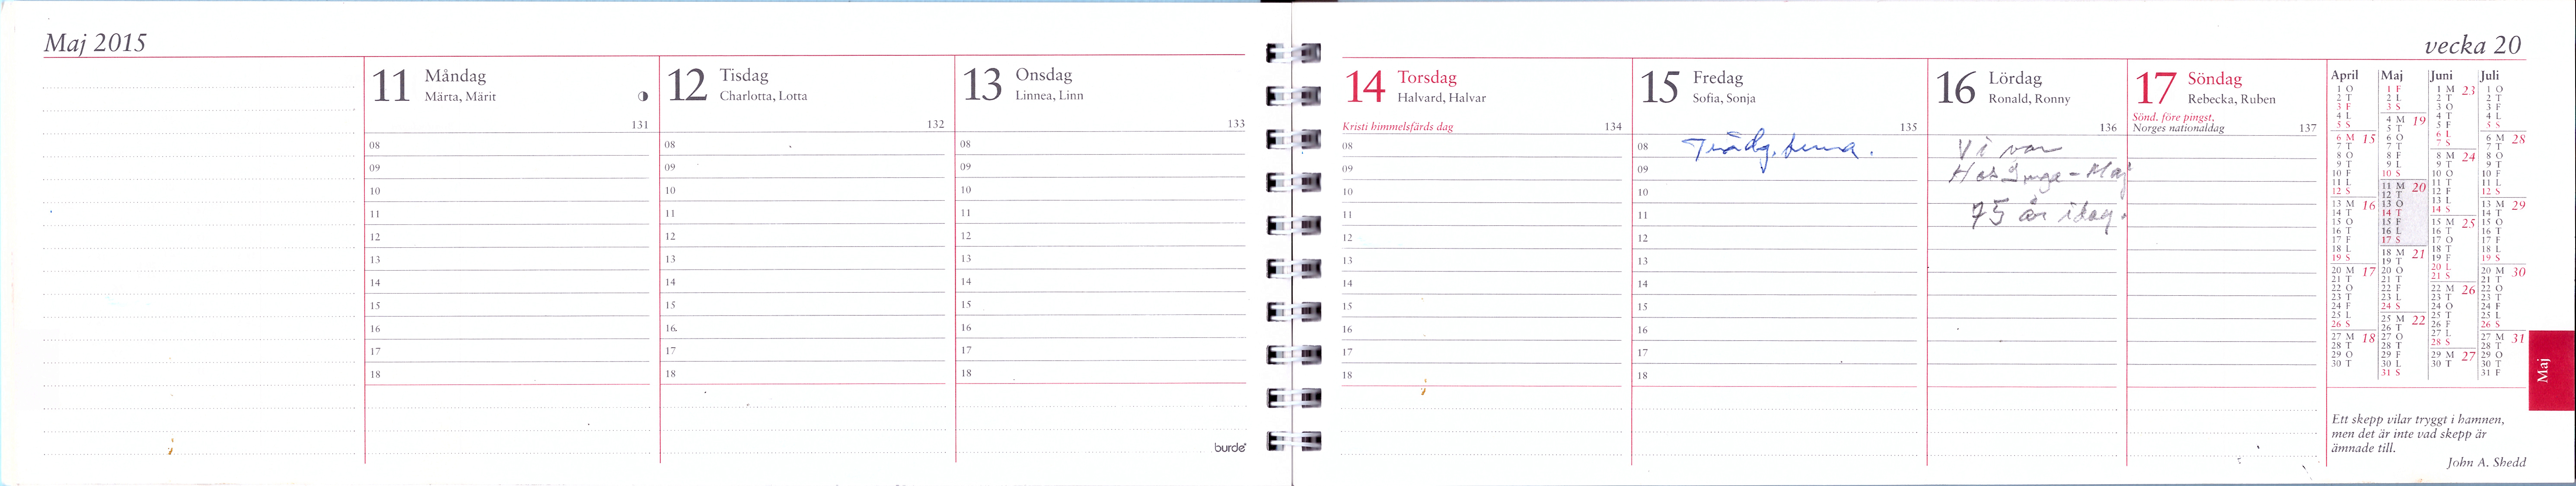 Maj 2015
11 Måndag
Märta, Märit
131
08
09
10
11
12
13
14
15
16
17
18
12 Tisdag
Charlotta, Lotta
132
08
09
10
11
12
13
14
15
16
17
18
13 Onsdag
Linnea, Linn
133
08
09
10
11
12
13
14
15
16
17
18
burde
vecka 20
14 Torsdag
Halvard, Halvar
Kristi himmelsfärds dag 134
08
09
10
11
12
13
14
15
16
17
18
15 Fredag
Sofia, Sonja
135
08 Trädg.
09
10
11
12
13
14
15
16
17
18
16 Lördag
Ronald, Ronny
136
Vi var
Hos Inga-Maj
75 år idag.
17 Söndag
Rebecka, Ruben
Sönd. före pingst,
Norges nationaldag 137
April
1 O
2 T
3 F
4 L
5 S
6 M 15
7 T
8 O
9 T
10 F
11 L
12 S
13 M 16
14 T
15 O
16 T
17 F
18 L
19 S
20 M 17
21 T
22 O
23 T
24 F
25 L
26 S
27 M 18
28 T
29 O
30 T
Maj
1 F
2 L
3 S
4 M 19
5 T
6 O
7 T
8 F
9 L
10 S
11 M 20
12 T
13 O
14 T
15 F
16 L
17 S
18 M 21
19 T
20 O
21 T
22 F
23 L
24 S
25 M 22
26 T
27 O
28 T
29 F
30 L
31 S
Juni
1 M 23
2 T
3 O
4 T
5 F
6 L
7 S
8 M 24
9 T
10 O
11 T
12 F
13 L
14 S
15 M 25
16 T
17 O
18 T
19 F
20 L
21 S
22 M 26
23 T
24 O
25 T
26 F
27 L
28 S
29 M 27
30 T
Juli
1 O
2 T
3 F
4 L
5 S
6 M 28
7 T
8 O
9 T
10 F
11 L
12 S
13 M 29
14 T
15 O
16 T
17 F
18 L
19 S
20 M 30
21 T
22 O
23 T
24 F
25 L
26 S
27 M 31
28 T
29 O
30 T
31 F
Maj
Ett skepp vilar tryggt i hamnen,
men det är inte vad skepp är
ämnade till.
John A. Shedd